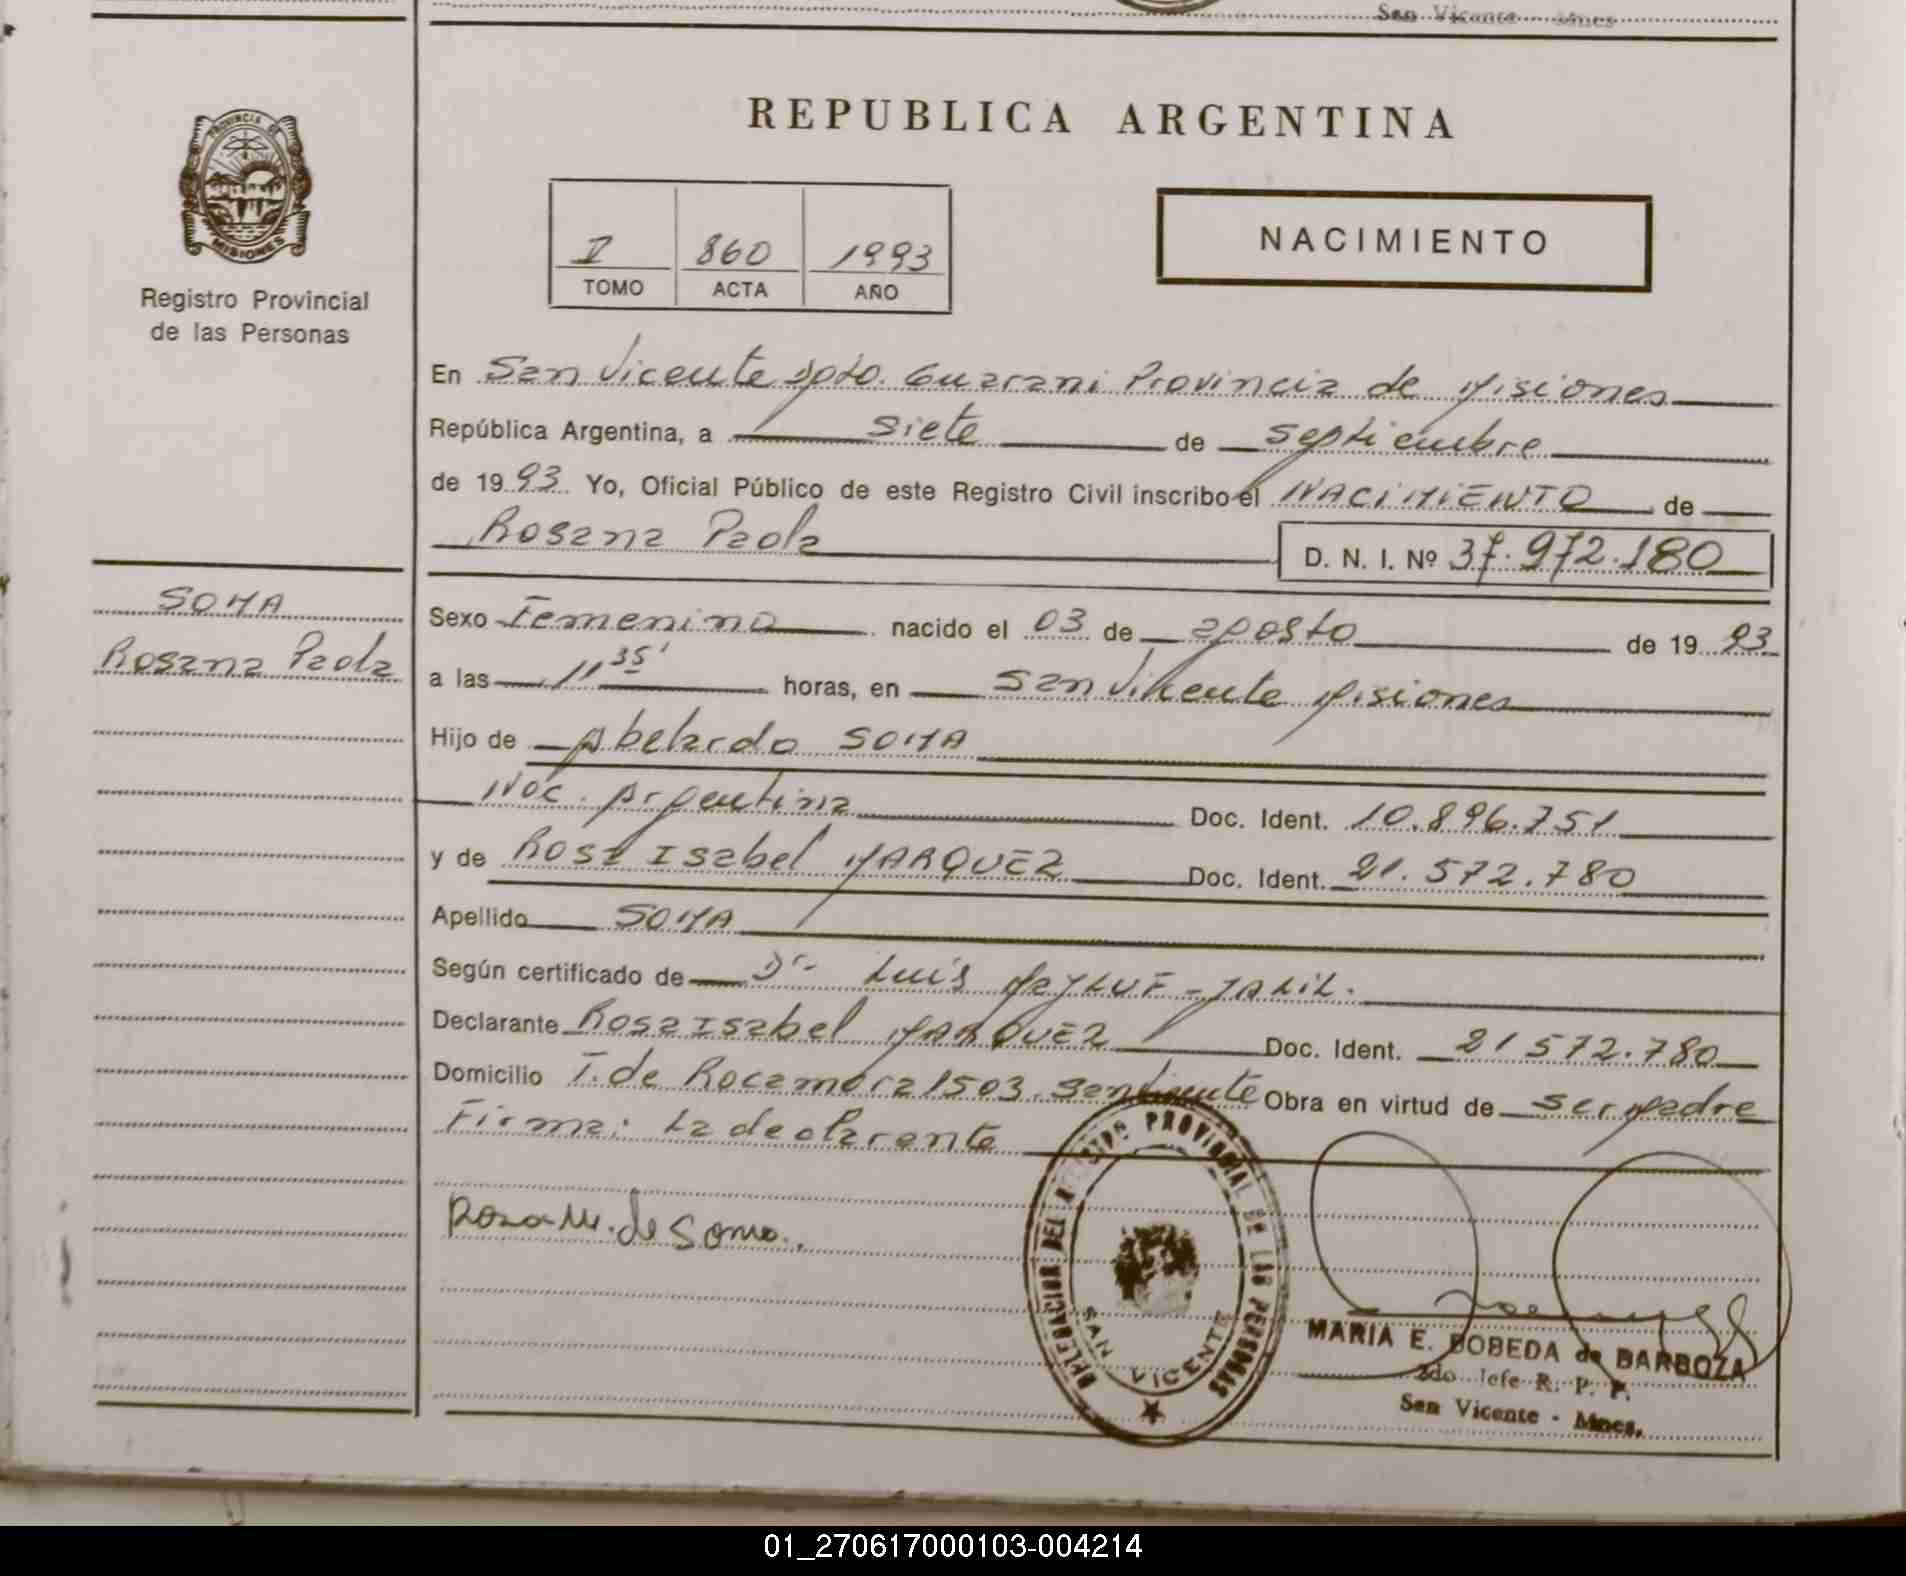 San Vicente Mnes
REPUBLICA ARGENTINA
PROVINCIA DE
MISIONES
Registro Provincial
de las Personas
I 860 1993
TOMO ACTA AÑO
NACIMIENTO
En San Vicente Dpto. Guarani Provincia de Misiones
República Argentina, a siete de septiembre
de 1993 Yo, Oficial Público de este Registro Civil inscribo el NACIMIENTO de
Rosana Paola D. N. I. Nº 37.972.180
SOMA
Rosana Paola
Sexo Femenino nacido el 03 de agosto de 1993
a las 11 35' horas, en San Vicente Misiones
Hijo de Abelardo SOMA
Nac. Argentina Doc. Ident. 10.896.751
y de Rosa Isabel MARQUEZ Doc. Ident. 21.572.780
Apellido SOMA
Según certificado de Dr. Luis JALIL.
Declarante Rosa Isabel MARQUEZ Doc. Ident. 21 572.780
Domicilio T. de Rocamora 1503. San Vicente Obra en virtud de ser madre
Firma: La declarante
Rosa M. de Soma.
DELEGACION DEL REGISTRO PROVINCIAL DE LAS PERSONAS
SAN VICENTE
MARIA E. BOBEDA de BARBOZA
2do Jefe R. P. P.
San Vicente - Mnes.
01_270617000103-004214